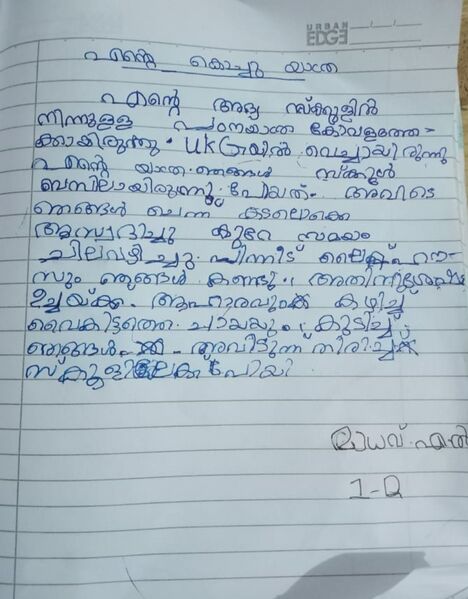 URBAN
EDGE
എന്റെ കൊച്ചു യാത്ര
എന്റെ ആദ്യ സ്ക്കൂളിൽ
നിന്നുള്ള പഠനയാത്ര കോവളത്തേ-
ക്കായിരുന്നു. UKGയിൽ വെച്ചായിരുന്നു
എന്റെ യാത്ര. ഞങ്ങൾ സ്കൂൾ
ബസിലായിരുന്നു പോയത്. അവിടെ
ഞങ്ങൾ ചെന്ന് കടലൊക്കെ
ആസ്വദിച്ചു കുറേ സമയം
ചിലവഴിച്ചു. പിന്നീട് ലൈറ്റ് ഹൗ-
സും ഞങ്ങൾ കണ്ടു. അതിന്ശേഷം
ഉച്ചയ്ക്ക് ആഹാരവുമൊക്കെ കഴിച്ച്
വൈകിട്ടത്തെ ചായയും കുടിച്ച്
ഞങ്ങൾ അവിടുന്ന് തിരിച്ച്
സ്കൂളിലേക്ക് പോയി.
മാധവ്. എൽ
1-D